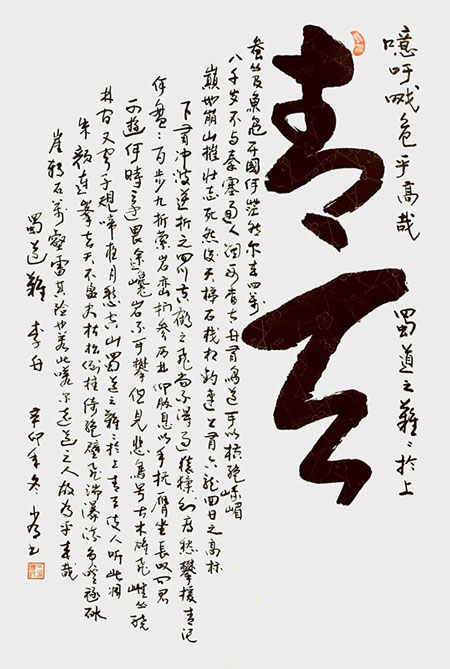 噫吁嚱危乎高哉 蜀道之難々於上
青天
蚕丛及魚凫開國何茫然尔来四萬
八千岁不与秦塞通人烟西当太白有鳥道可以横绝峨嵋
巅地崩山摧壮士死然後天梯石栈相钩連上有六龍回日之高标
下有冲波逆折之回川黄鹤之飞尚不得過猿猱欲度愁攀援青泥
何盘々百步九折萦岩峦扪参历井仰胁息以手抚膺坐長叹问君
西遊何時還畏途巉岩不可攀但見悲鳥号古木雄飞雌从绕
林间又闻子規啼夜月愁空山蜀道之難々於上青天使人听此凋
朱颜連峯去天不盈尺枯松倒挂倚绝壁飞湍瀑流争喧豗砯
崖转石萬壑雷其险也若此嗟尔遠道之人胡为乎来哉
蜀道難 李白 辛卯年冬